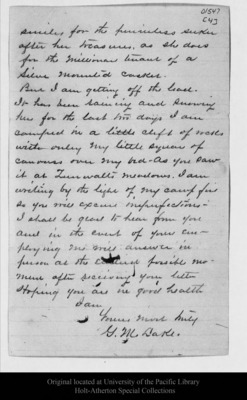 01547
smiles for the penniless seeker
after her treasures, as she does
for the millionair tenant of a
Silver mounted casket.
But I am getting off the lead.
It has been raining and snowing
here for the last two days I am
camped in a little cleft of rocks
with only my little square of
canvas over my bed - As you saw
it at Tuolumne meadows. I am
writing by the light of my camp fire
so you will excuse imperfections -
I shall be glad to hear from you
and in the event of your em-
ploying me will answer in
person at the earliest possible mo-
ment after receiving your letter
Hoping you are in good health
I am
Yours most truly
G. M.
Original located at University of the Pacific Library
Holt-Atherton Special Collections